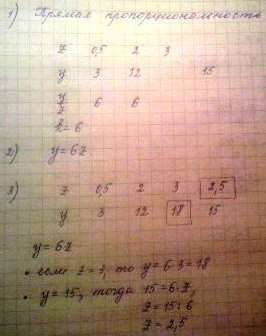 1) Прямая пропорциональность
z 0,5 2 3
y 3 12 15
y/z 6 6
k = 6
2) y = 6z
3) z 0,5 2 3 2,5
y 3 12 18 15
y = 6z
• если z = 3, то y = 6·3 = 18
• y = 15, тогда 15 = 6·z,
z = 15:6
z = 2,5